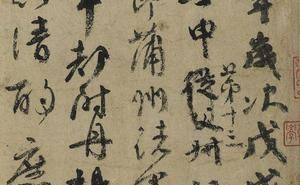 年歲次戊
申從父叔
第十三
蒲州諸
都尉丹
清酌